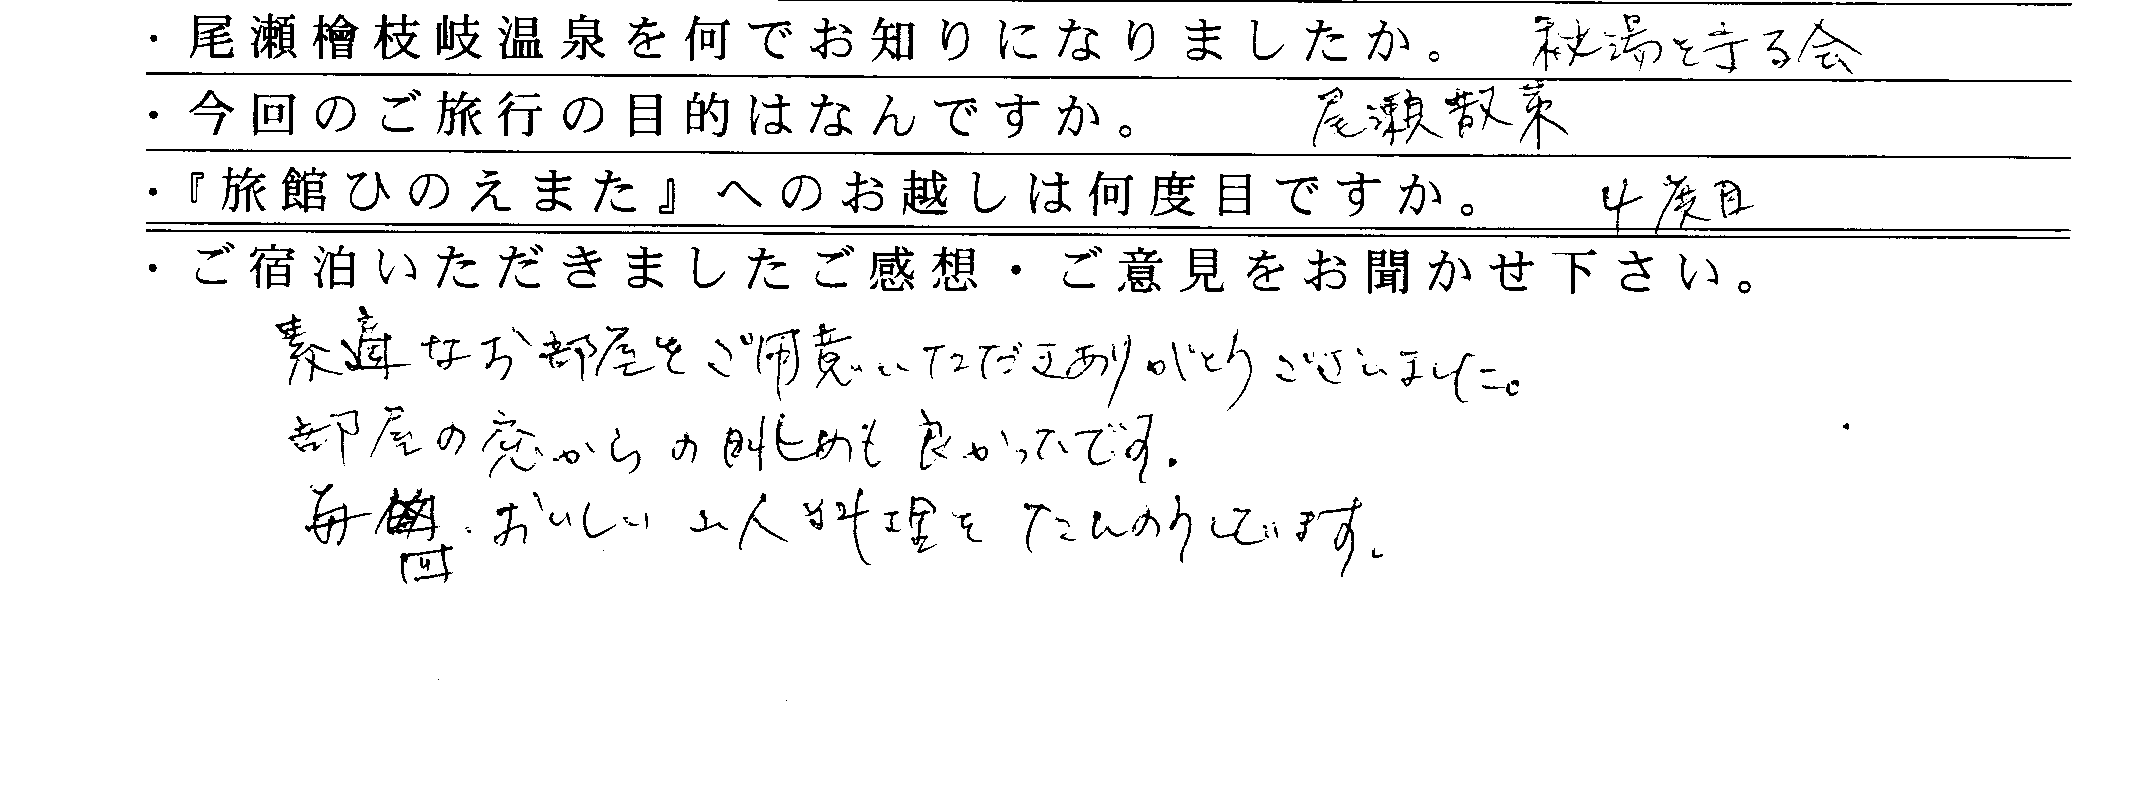 ・尾瀬檜枝岐温泉を何でお知りになりましたか。 秘湯を守る会
・今回のご旅行の目的はなんですか。 尾瀬散策
・『旅館ひのえまた』へのお越しは何度目ですか。 4度目
・ご宿泊いただきましたご感想・ご意見をお聞かせ下さい。
素適なお部屋をご用意いただきありがとうございました。
部屋の窓からの眺めも良かったです。
毎回、おいしい山人料理をたんのうしています。